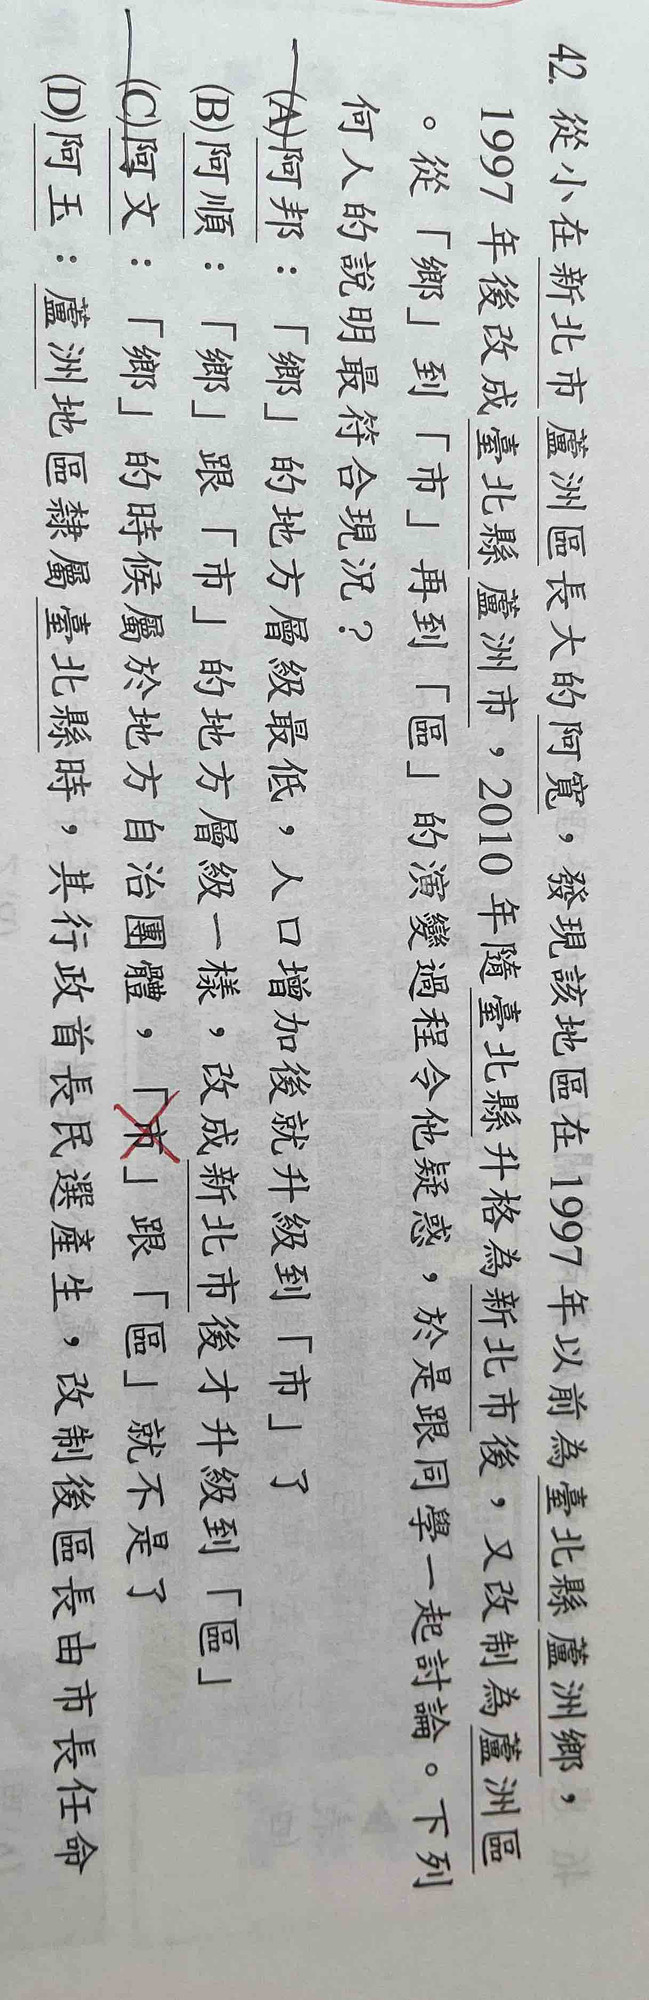 42. 從小在新北市蘆洲區長大的阿寬，發現該地區在1997年以前為臺北縣蘆洲鄉，
1997年後改成臺北縣蘆洲市，2010年隨臺北縣升格為新北市後，又改制為蘆洲區
。從「鄉」到「市」再到「區」的演變過程令他疑惑，於是跟同學一起討論。下列
何人的說明最符合現況？
(A)阿邦：「鄉」的地方層級最低，人口增加後就升級到「市」了
(B)阿順：「鄉」跟「市」的地方層級一樣，改成新北市後才升級到「區」
(C)阿文：「鄉」的時候屬於地方自治團體，「市」跟「區」就不是了
(D)阿玉：蘆洲地區隸屬臺北縣時，其行政首長民選產生，改制後區長由市長任命